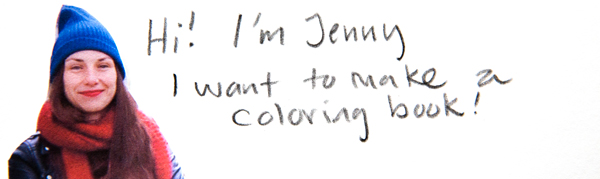 Hi! I'm Jenny
I want to make a
coloring book!